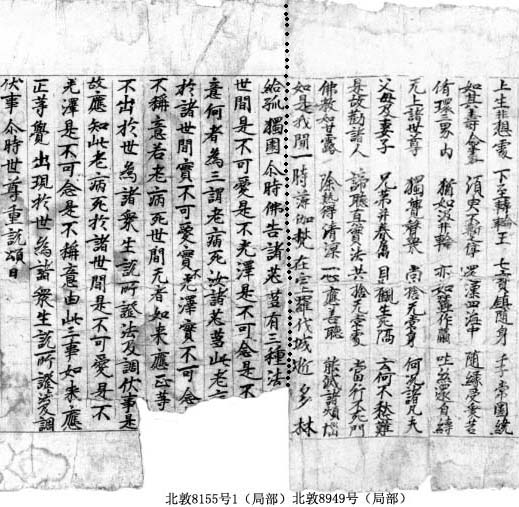 上生非想處 下至轉輪王 七寶鎮隨身 千子常圍繞
如其壽命盡 須臾不暫停 還漂四海中 隨緣受衆苦
循環三界內 猶如汲井輪 亦如蠶作繭 吐絲還自縛
无上諸世尊 獨覺聲聞衆 尚捨无常身 何況諸凡夫
父母及妻子 兄弟并眷屬 目觀生死隔 云何不愁歎
是故勸諸人 諦聽真實法 共捨无常處 當行不死門
佛教如甘露 除熱得清涼 一心應善聽 能滅諸煩惱
如是我聞一時薄伽梵在室羅伐城逝多林
給孤獨園尒時佛告諸苾芻有三種法
世間是不可愛是不光澤是不可念是不
意何者為三謂老病死汝諸苾芻此老
於諸世間實不可愛實不光澤實不可念
不稱意若老病死世間无者如來應正等
不出於世為諸衆生說所證法及調伏事是
故應知此老病死於諸世間是不可愛是不
光澤是不可念是不稱意由此三事如來應
正等覺出現於世為諸衆生說所證法及調
伏事尒時世尊重說頌曰
北敦8155号1（局部）北敦8949号（局部）